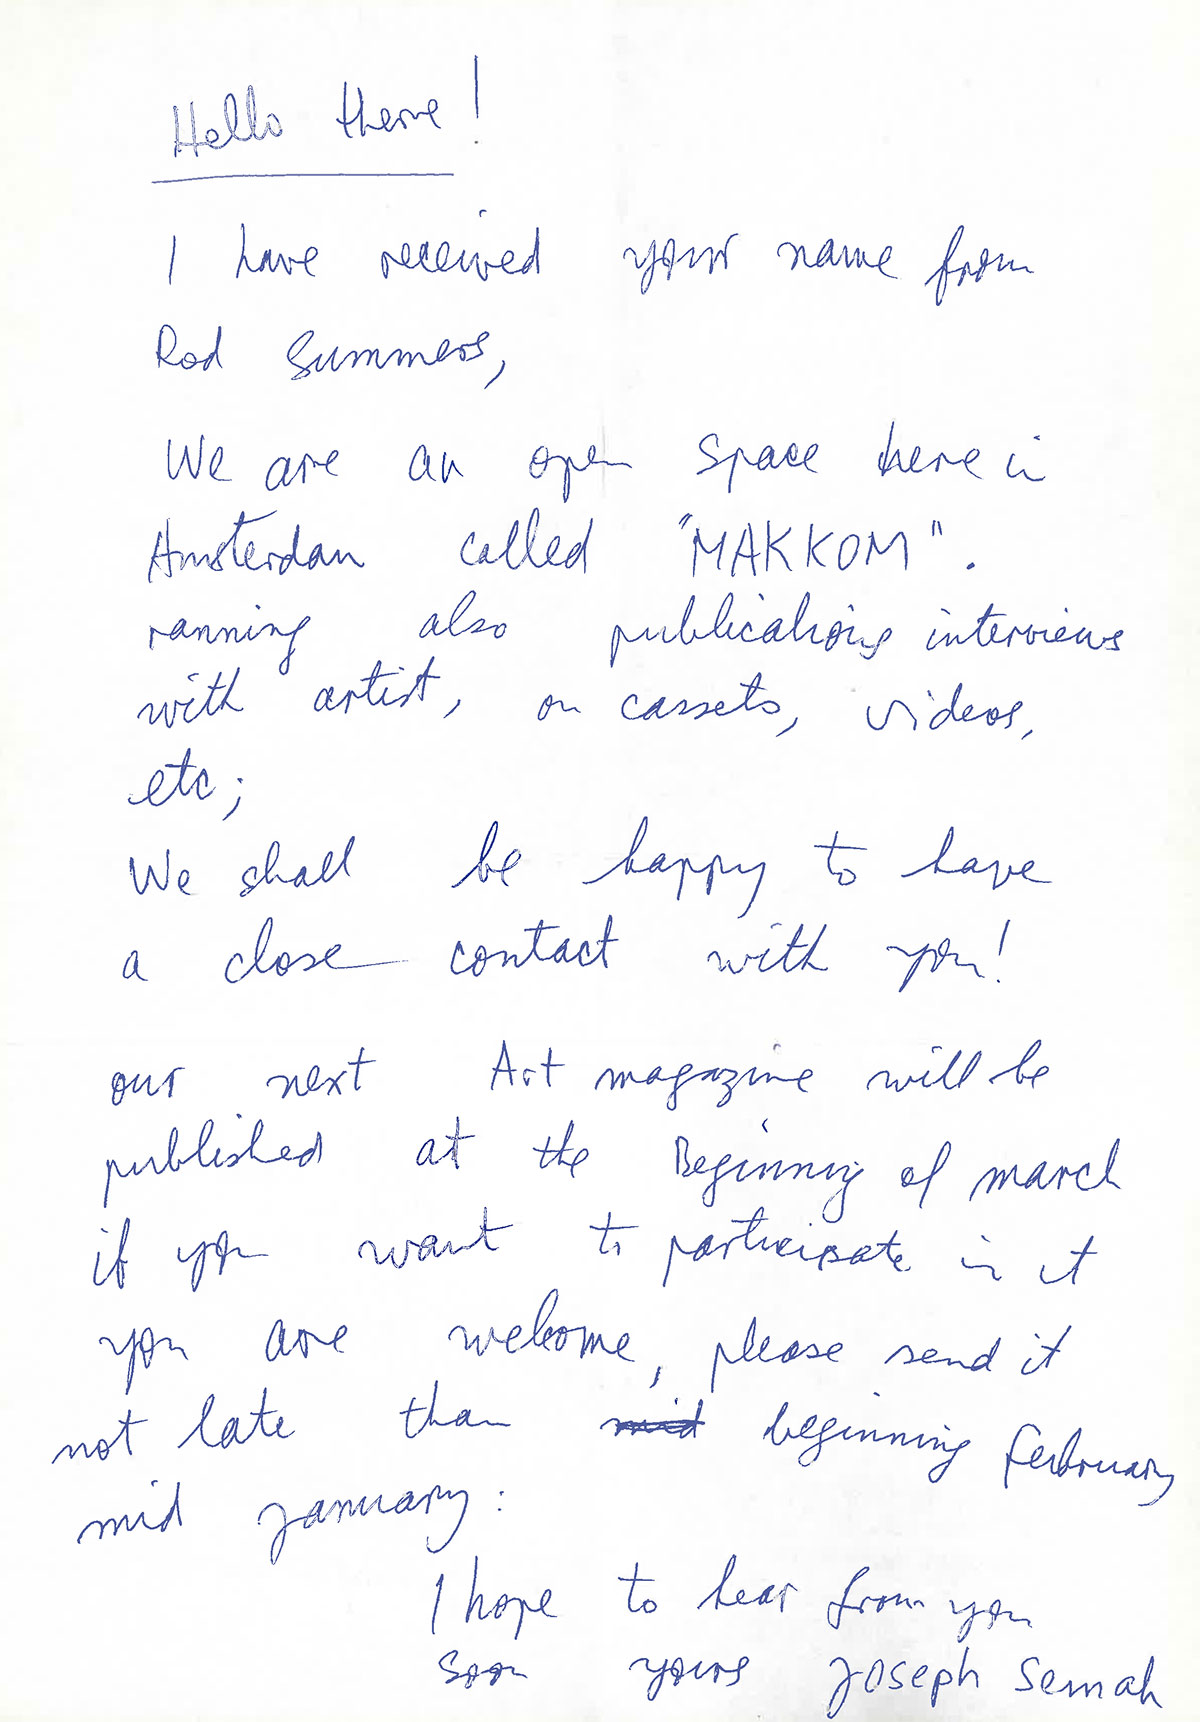 Hello there!
I have received your name from
Rod Summers,
We are an open space here in
Amsterdam called "MAKKOM".
ranning also publications interviews
with artist, on cassets, videos,
etc;
We shall be happy to have
a close contact with you!
our next Art magazine will be
published at the Beginning of march
if you want to participate in it
you are welcome, please send it
not late than mid beginning february
mid january:
I hope to hear from you
soon yours Joseph Semah